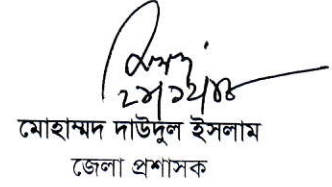 মোহাম্মদ দাউদুল ইসলাম
জেলা প্রশাসক